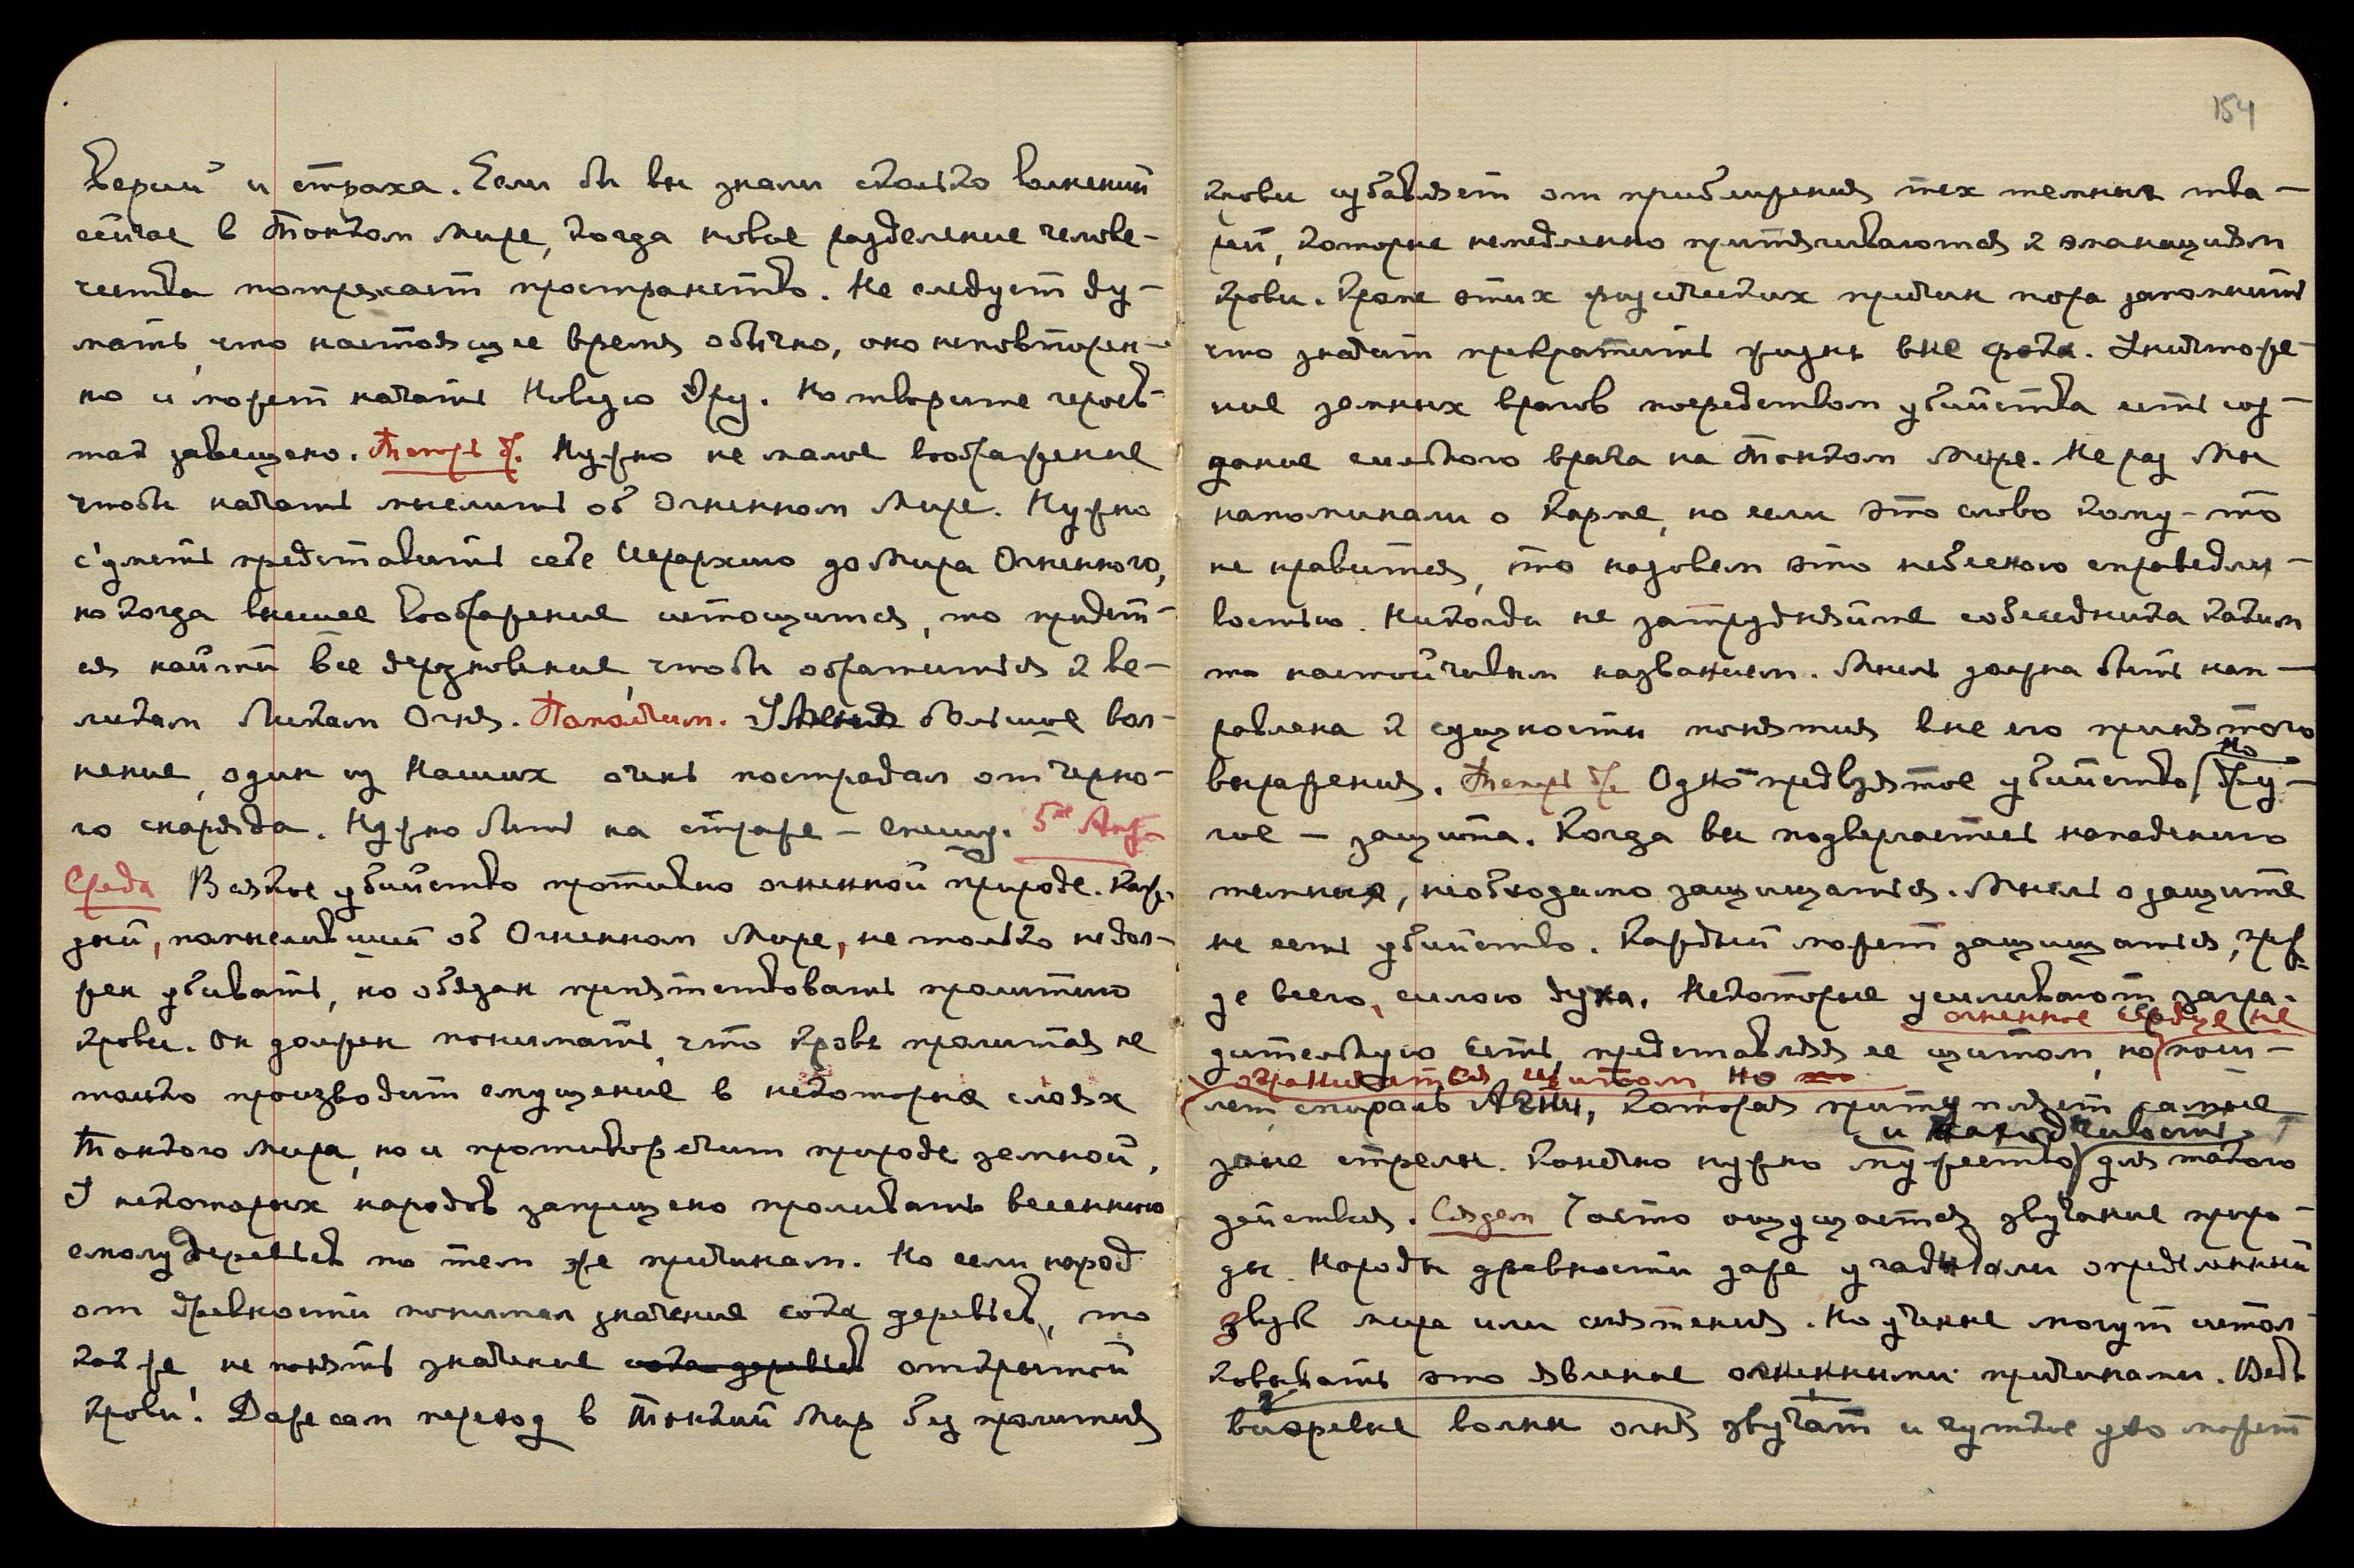 верий и страха. Если бы вы знали сколько волнений
сейчас в Тонком Мире, когда новое разделение челове-
чества потрясает пространство. Не следует ду-
мать, что настоящее время обычно, оно неповторен-
но и может начать Новую Эру. Но творите героев
так завещано. Теперь др. Нужно не малое воображение
чтобы начать мыслить об Огненном Мире. Нужно
суметь представить себе Иерархию до Мира Огненного,
но когда высшее воображение истощится, то придет-
ся найти все дерзновение, чтобы обратиться к ве-
ликим Ликам Огня. Покончим. У Меня большое вол-
нение, один из Наших очень пострадал от черно-
го снаряда. Нужно быть на страже – спешу. 5го Апр.
Среда Всякое убийство противно огненной природе. Каж-
дый, помысливший об Огненном Мире, не только не дол-
жен убивать, но обязан препятствовать пролитию
крови. Он должен понимать, что кровь пролитая не
только производит смущение в некоторых слоях
Тонкого Мира, но и противоречит природе земной.
У некоторых народов запрещено проливать весеннюю
смолу деревьев по тем же причинам. Но если народ
от древности понимал значение сока деревьев, то
как же не понять значение сока деревьев открытой
крови! Даже сам переход в Тонкий Мир без пролития
154
крови избавляет от приближения тех темных тва-
рей, которые немедленно притягиваются к эманациям
крови. Кроме этих физических причин пора запомнить
что значит прекратить жизнь вне срока. Уничтоже-
ние земных врагов посредством убийства есть соз-
дание сильного врага на Тонком Мире. Не раз Мы
напоминали о Карме, но если это слово кому-то
не нравится, то назовем это небесною справедли-
востью. Никогда не затрудняйте собеседника каким
то настойчивым названием. Мысль должна быть нап-
равлена к сущности понятия вне его принятого
но
выражения. Теперь др. Одно предвзятое убийство, дру-
гое – защита. Когда вы подвергаетесь нападению
темных, необходимо защищаться. Мысль о защите
не есть убийство. Каждый может защищаться, преж-
де всего, силою духа. Некоторые усиливают загра-
огненное сердце не
дительную сеть, представляя ее щитом, но пош-
ограничится щитом но
лет спираль Агни, которая притупляет самые
и находчивость
злые стрелы. Конечно нужно мужество для такого
действия. Сядем Часто ощущается звучание приро-
ды. Народы древности даже угадывали определенный
звук мира или смятения. Но ученые могут истол-
ковывать это явление огненными причинами. Ведь
вихревые волны огня звучат и чуткое ухо может